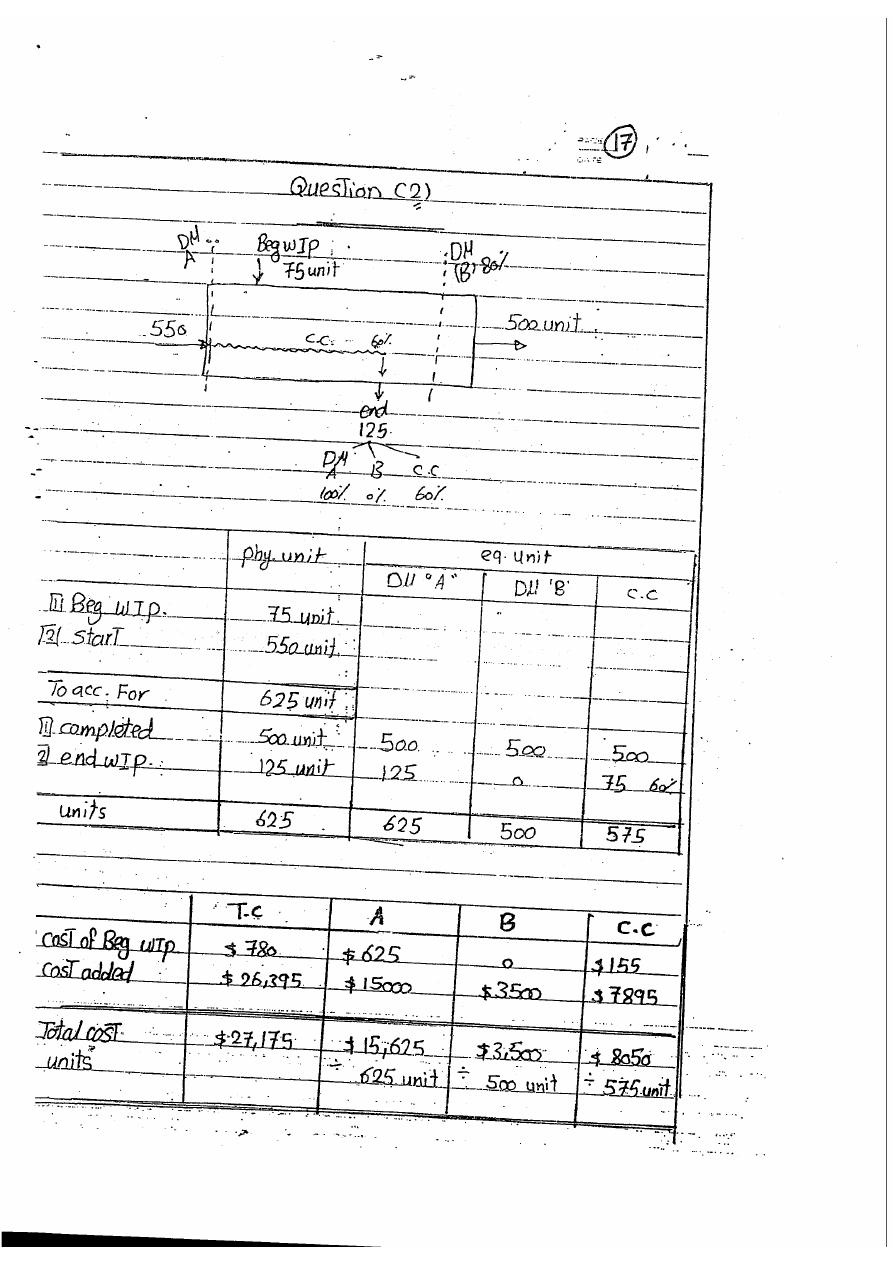 PAGE 17
DATE
Question (2)
DM A
Beg WIP
75 unit
DM
(B) 80%
550
C.C. 60%
500 unit
end
125
DM A B C.C
100% 0% 60%
phy. unit eq. unit
DM "A" DM 'B' C.C
1 Beg WIP. 75 unit
2 Start 550 unit
To acc. For 625 unit
1 completed 500 unit 500 500 500
2 end WIP. 125 unit 125 0 75 60%
units 625 625 500 575
T.C A B C.C
cost of Beg WIP $ 780 $ 625 0 $ 155
cost added $ 26,395 $ 15000 $3500 $ 7895
Total cost $27,175 $ 15,625 $3,500 $ 8050
units ÷ 625 unit ÷ 500 unit ÷ 575 unit